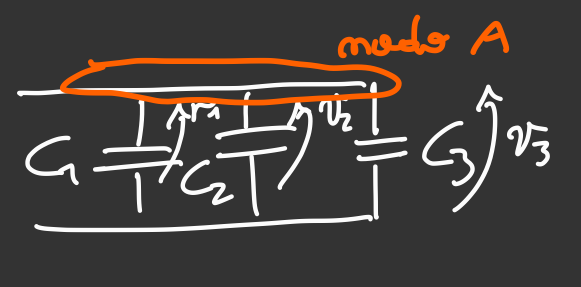 nodo A
C₁ v₁ C₂ v₂ C₃ v₃